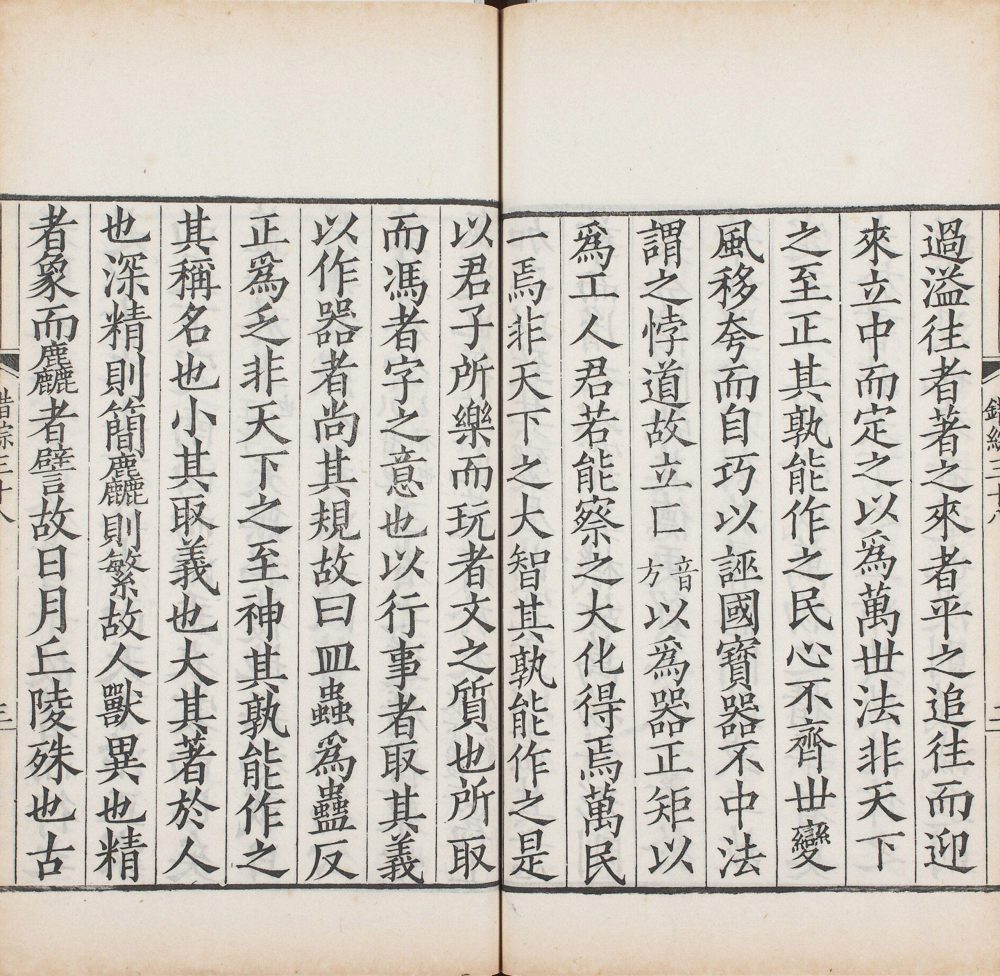 過溢往者著之來者平之追往而迎
來立中而定之以爲萬世法非天下
之至正其孰能作之民心不齊世變
風移夸而自巧以誣國寶器不中法
謂之悖道故立匚音方以爲器正矩以
爲工人君若能察之大化得焉萬民
一焉非天下之大智其孰能作之是
以君子所樂而玩者文之質也所取
而馮者字之意也以行事者取其義
以作器者尚其規故曰皿蟲爲蠱反
正爲乏非天下之至神其孰能作之
其稱名也小其取義也大其著於人
也深精則簡麤則繁故人獸異也精
者象而麤者譬言故日月丘陵殊也古
錯綜三十八
二
錯綜三十八
三